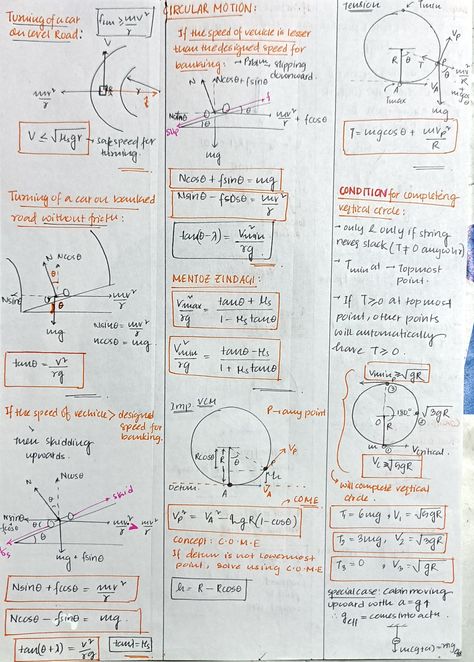 Turning of a car
on Level Road:
fsm ≥ mv²/r
V
mv²/r
r
V ≤ √μsgr → safe speed for
turning.
Turning of a car on banked
road without friction:
N
Ncosθ
θ
Nsinθ
mv²/r
mg
Nsinθ = mv²/r
Ncosθ = mg
tanθ = v²/rg
If the speed of vechicle > designed
speed for
banking.
then skidding
upwards.
N
Ncosθ
skid
Nsinθ
fcosθ
θ
mv²/r
mg + fsinθ
Nsinθ + fcosθ = mv²/r
Ncosθ - fsinθ = mg
tan(θ+λ) = v²/rg
tanλ = μs
CIRCULAR MOTION:
If the speed of vehicle is lesser
than the designed speed for
banking: → slipping
downward.
N
Ncosθ + fsinθ
f
Nsinθ
slip
θ
mv²/r + fcosθ
mg
Ncosθ + fsinθ = mg
Nsinθ - fcosθ = mv²/r
tan(θ-λ) = v²min/rg
MENTOZ ZINDAGI:
V²max/rg = tanθ + μs/1 - μstanθ
V²min/rg = tanθ - μs/1 + μstanθ
Imp. VCM
P → any point
Rcosθ
R
θ
P
VP
h
Datum
A
VA
COME
VP² = VA² - 2gR(1-cosθ)
concept: C·O·M·E
If datum is not lowermost
point, solve using C·O·M·E
h = R - Rcosθ
Tension
Tmin
R
θ
VP
P
mv²/R
A
Tmax
mg
mgcosθ
T = mgcosθ + mvP²/R
CONDITION for completing
vertical circle:
→ only & only if string
never slack (T≠0 anywhr)
→ Tmin at → Topmost
point.
→ If T≥0 at topmost
point, other points
will automatically
have T≥0.
Vmin ≥ √gR
③
R
180°
② √3gR
O
m
①
Vcritical
VL ≥ √5gR
will complete vertical
circle.
T₁ = 6mg, V₁ = √5gR
T₂ = 3mg, V₂ = √3gR
T₃ = 0, V₃ = √gR
special case: cabin moving
upward with a = g↑
∴ geff = comes into act
m(g+a) = mgeff